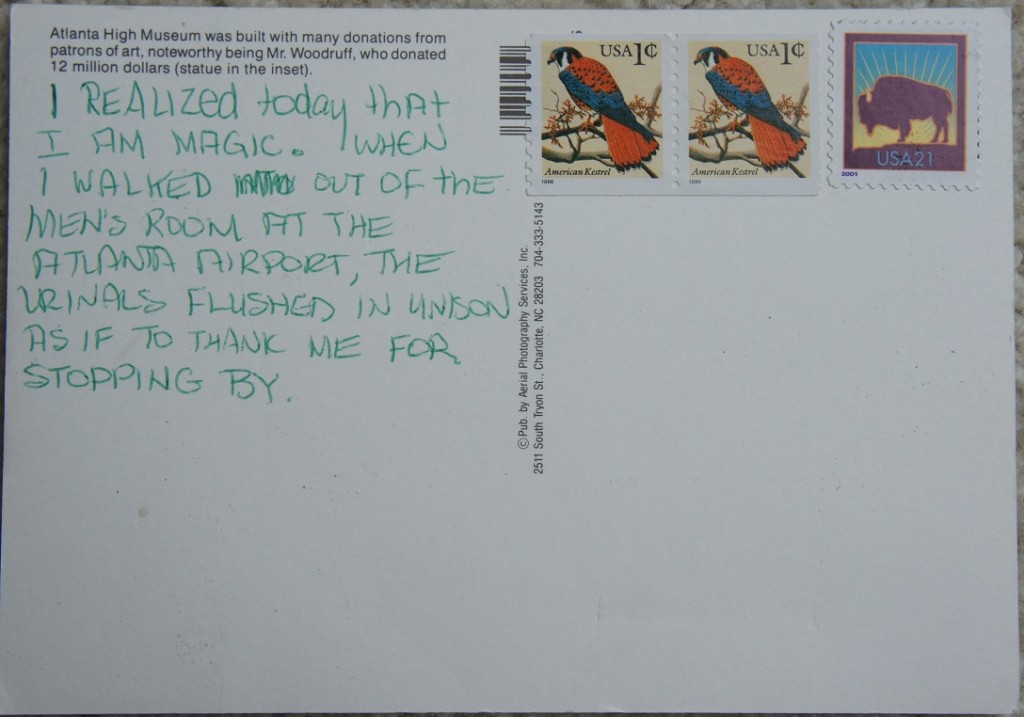 Atlanta High Museum was built with many donations from
patrons of art, noteworthy being Mr. Woodruff, who donated
12 million dollars (statue in the inset).
I REALIZED today that
I AM MAGIC. WHEN
I WALKED OUT OF the
MEN'S ROOM AT THE
ATLANTA AIRPORT, THE
URINALS FLUSHED IN UNISON
AS IF TO THANK ME FOR
STOPPING BY.
©Pub. by Aerial Photography Services, Inc.
2511 South Tryon St., Charlotte, NC 28203 704-333-5143
USA1¢
American Kestrel
1996
USA1¢
American Kestrel
1996
USA21
2001